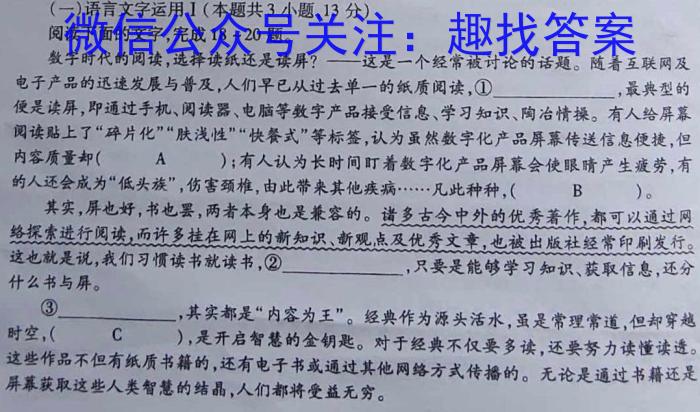 (一)语言文字运用Ⅰ(本题共3小题,13分)
阅读下面的文字,完成18~20题。
微信公众号关注：趣找答案
数字时代的阅读,选择读纸还是读屏？——这是一个经常被讨论的话题。随着互联网及
电子产品的迅速发展与普及,人们早已从过去单一的纸质阅读,①____________,最典型的
便是读屏,即通过手机、阅读器、电脑等数字产品接受信息、学习知识、陶冶情操。有人给屏幕
阅读贴上了“碎片化”“肤浅性”“快餐式”等标签,认为虽然数字化产品屏幕传送信息便捷,但
内容质量却( A );有人认为长时间盯着数字化产品屏幕会使眼睛产生疲劳,有
的人还会成为“低头族”,伤害颈椎,由此带来其他疾病……凡此种种,( B )。
其实,屏也好,书也罢,两者本身也是兼容的。诸多古今中外的优秀著作,都可以通过网
络探索进行阅读,而许多挂在网上的新知识、新观点及优秀文章,也被出版社经常印刷发行。
这也就是说,我们习惯读书就读书,②____________,只要是能够学习知识、获取信息,还分
什么书与屏。
③____________,其实都是“内容为王”。经典作为源头活水,虽是常理常道,但却穿越
时空,( C ),是开启智慧的金钥匙。对于经典不仅要多读,还要努力读懂读透。
这些作品不但有纸质书籍的,还有电子书或通过其他网络方式传播的。无论是通过书籍还是
屏幕获取这些人类智慧的结晶,人们都将受益无穷。